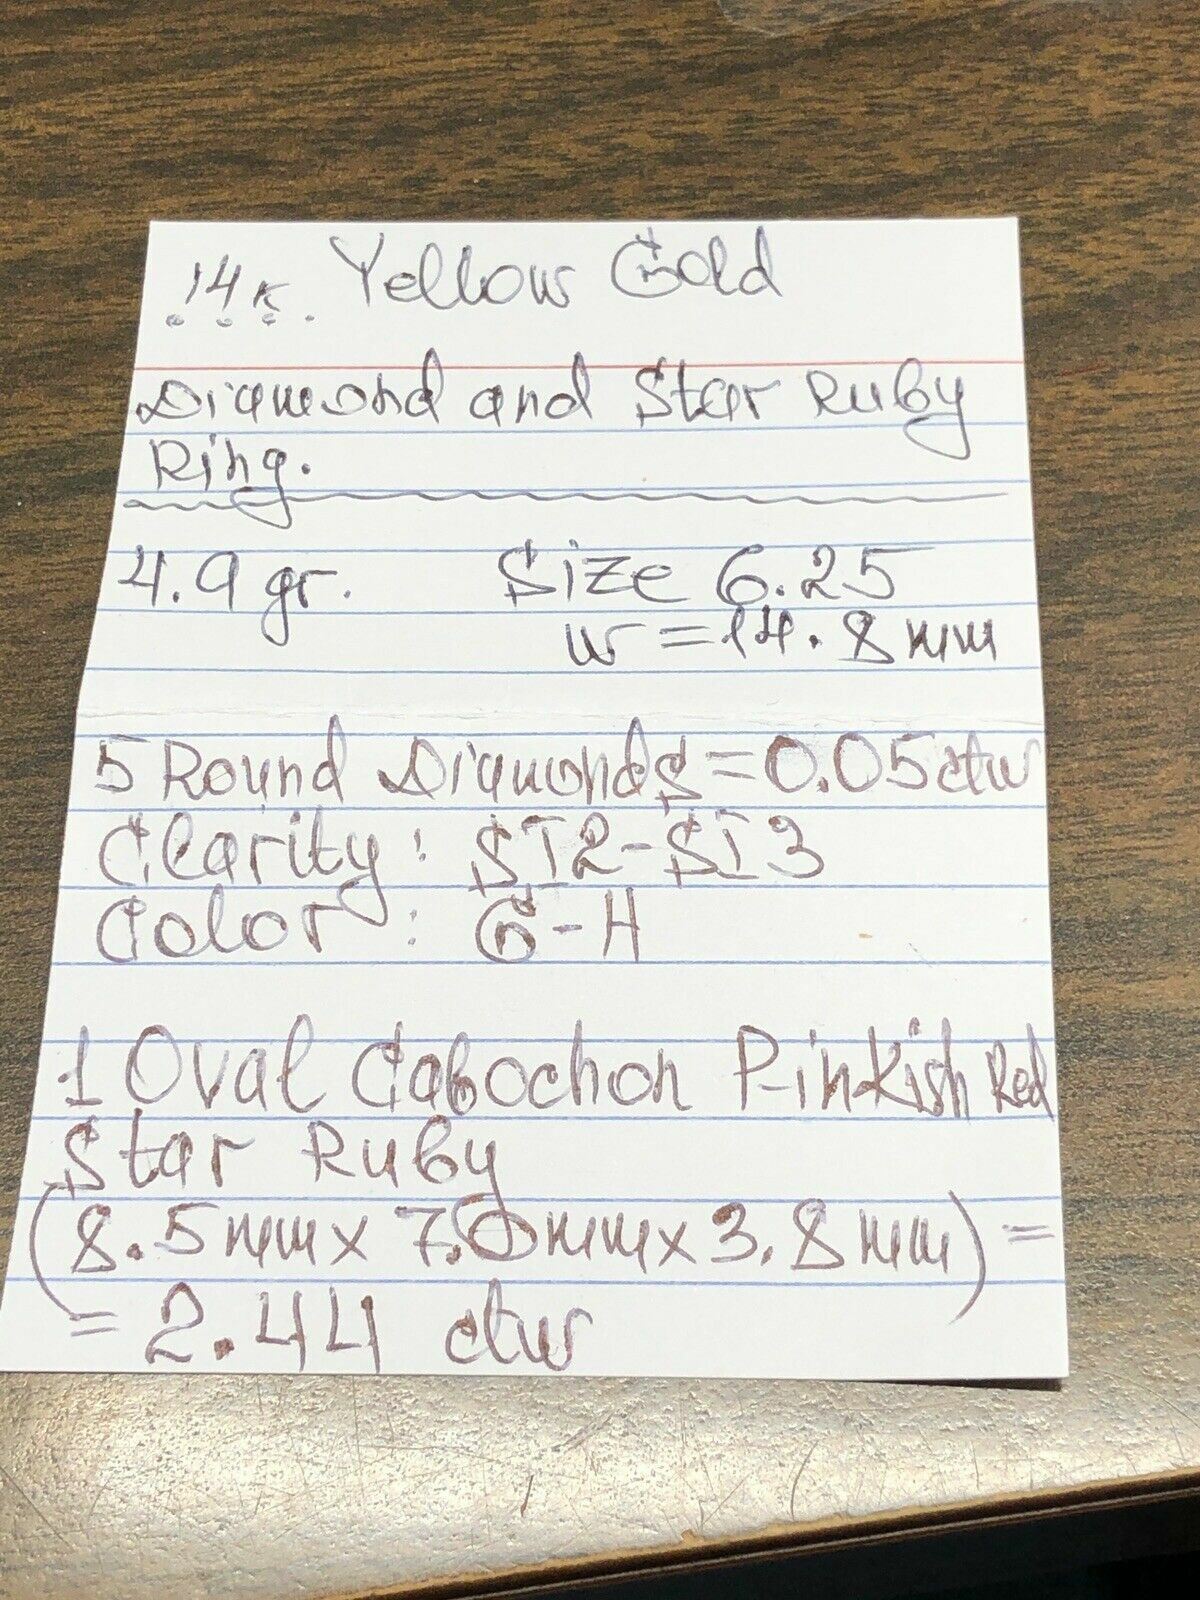 14K. Yellow Gold
Diamond and Star Ruby
Ring.
4.9 gr. Size 6.25
w = 14.8 mm
5 Round Diamonds = 0.05 ctw
Clarity: SI2-SI3
Color: G-H
1 Oval Cabochon Pinkish Red
Star Ruby
(8.5mm x 7.0mm x 3.8mm) =
= 2.44 ctw